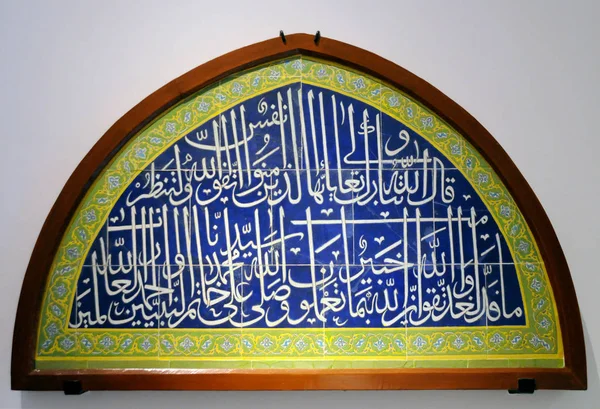 قال الله تبارك وتعالى يا ايها الذين امنوا اتقوا الله ولتنظر نفس
ما قدمت لغد واتقوا الله ان الله خبير بما تعملون وصلى الله على سيدنا محمد خاتم النبيين والحمد لله رب العالمين